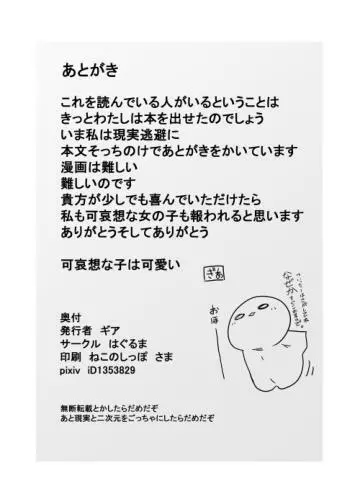 あとがき
これを読んでいる人がいるということは
きっとわたしは本を出せたのでしょう
いま私は現実逃避に
本文そっちのけであとがきをかいています
漫画は難しい
難しいのです
貴方が少しでも喜んでいただけたら
私も可哀想な女の子も報われると思います
ありがとうそしてありがとう
可哀想な子は可愛い
奥付
発行者 ギア
サークル はぐるま
印刷 ねこのしっぽ さま
pixiv iD1353829
おほ
なぜか
無断転載とかしたらだめだぞ
あと現実と二次元をごっちゃにしたらだめだぞ